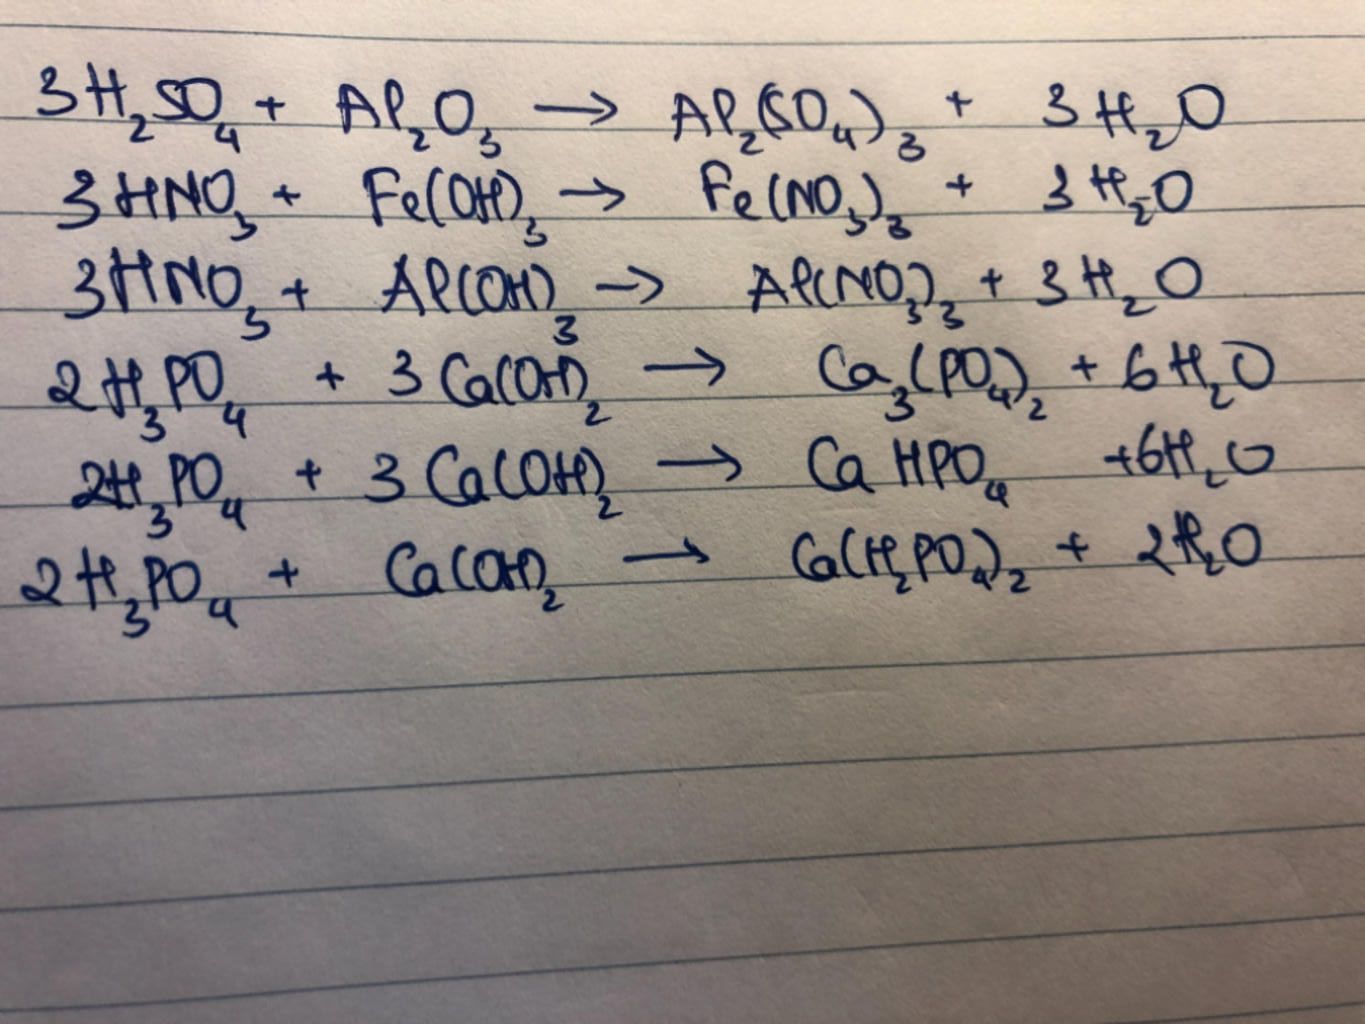 3H₂SO₄ + Al₂O₃ → Al₂(SO₄)₃ + 3H₂O
3HNO₃ + Fe(OH)₃ → Fe(NO₃)₃ + 3H₂O
3HNO₃ + Al(OH)₃ → Al(NO₃)₃ + 3H₂O
2H₃PO₄ + 3Ca(OH)₂ → Ca₃(PO₄)₂ + 6H₂O
2H₃PO₄ + 3Ca(OH)₂ → CaHPO₄ + 6H₂O
2H₃PO₄ + Ca(OH)₂ → Ca(H₂PO₄)₂ + 2H₂O